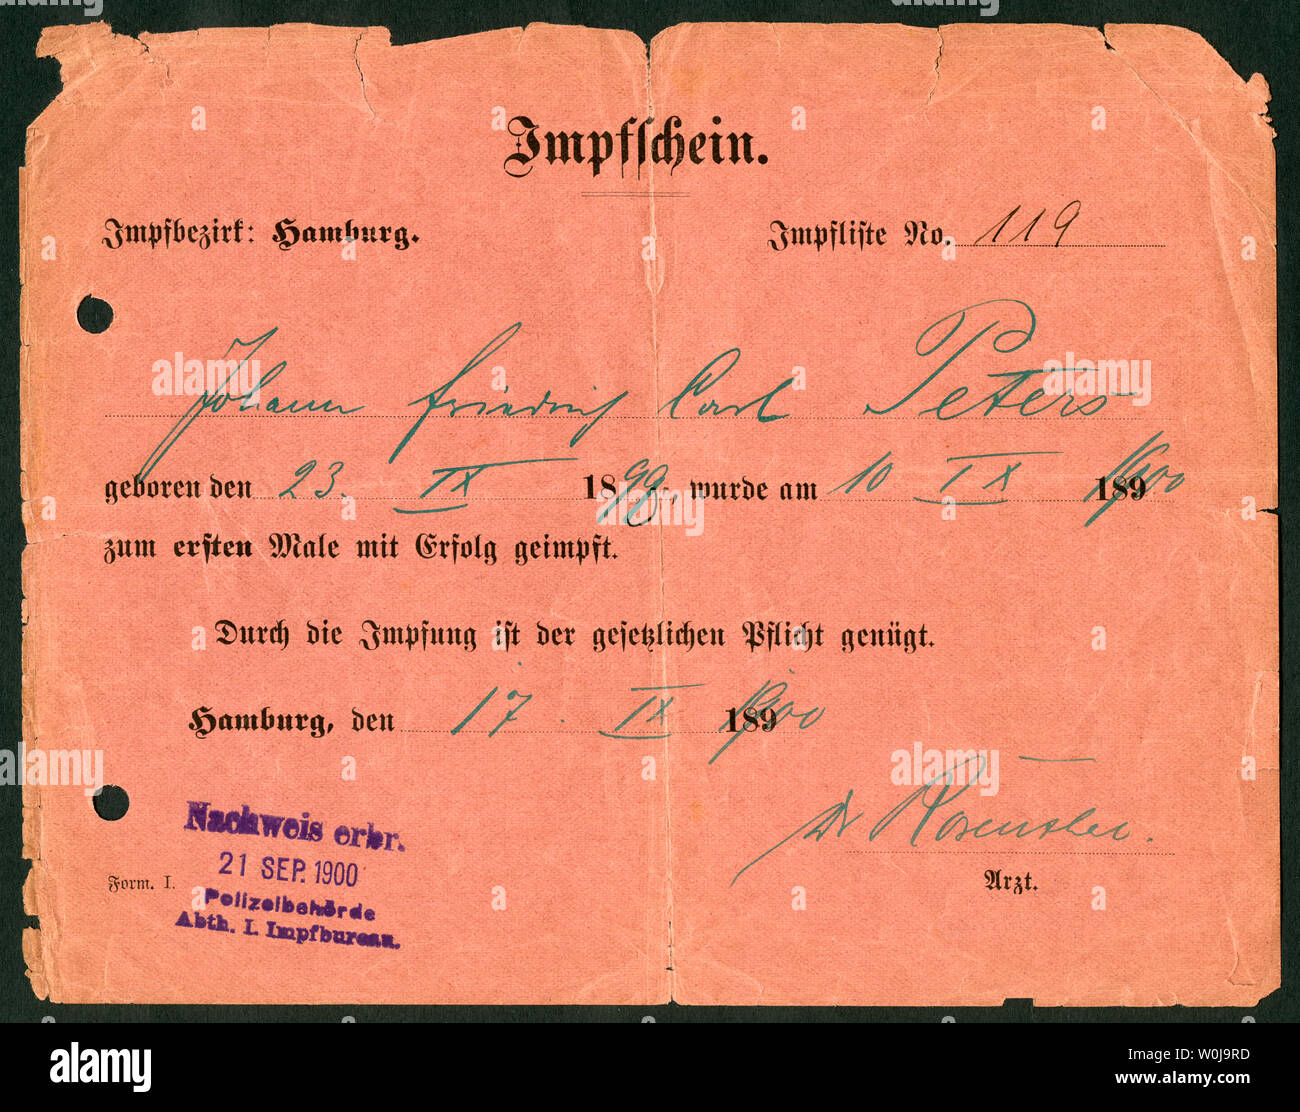 Impfschein.
Impfbezirk: Hamburg. Impfliste No. 119
Johann Friedrich Carl Peters
geboren den 23. IX 1899, wurde am 10 IX 1900
zum ersten Male mit Erfolg geimpft.
Durch die Impfung ist der gesetzlichen Pflicht genügt.
Hamburg, den 17. IX 1900
Dr
Arzt.
Form. I.
Nachweis erbr.
21 SEP. 1900
Polizeibehörde
Abth. I. Impfbureau.
alamy
Image ID: W0J9RD
www.alamy.com